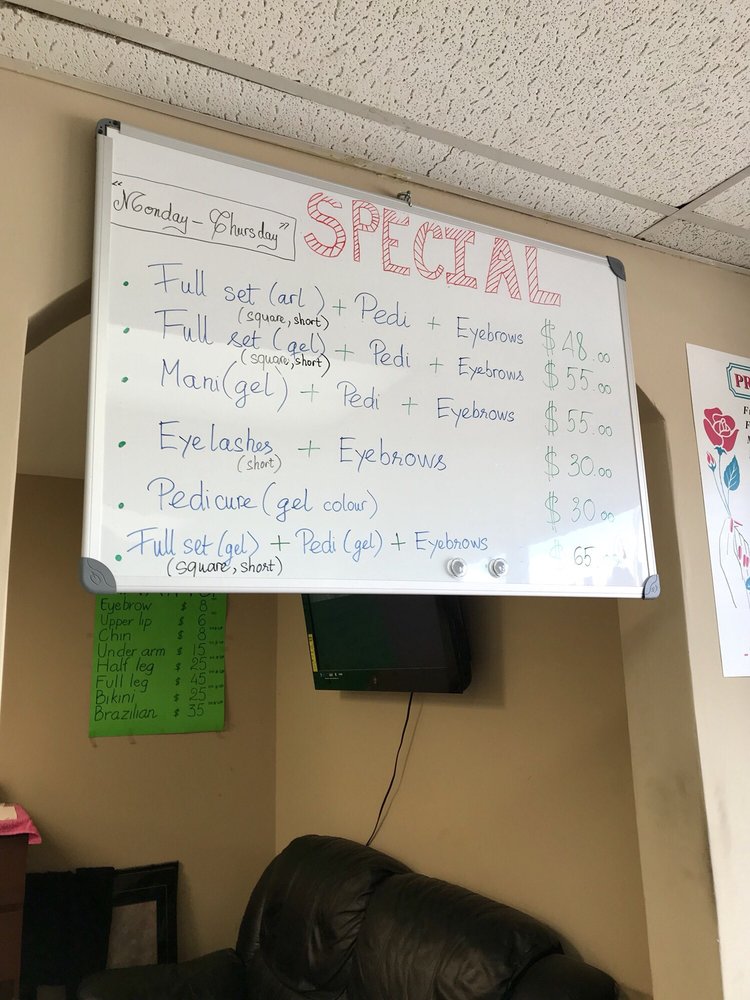 "Monday - Thursday"
SPECIAL
• Full set (arl) + Pedi + Eyebrows $48.00
(square, short)
• Full set (gel) + Pedi + Eyebrows $55.00
(square, short)
• Mani (gel) + Pedi + Eyebrows $55.00
• Eyelashes + Eyebrows $30.00
(short)
• Pedicure (gel colour) $30.00
• Full set (gel) + Pedi (gel) + Eyebrows $65
(square, short)
Eyebrow $ 8
Upper lip $ 6
Chin $ 8
Under arm $ 15
Half leg $ 25
Full leg $ 45
Bikini $ 25
Brazilian $ 35